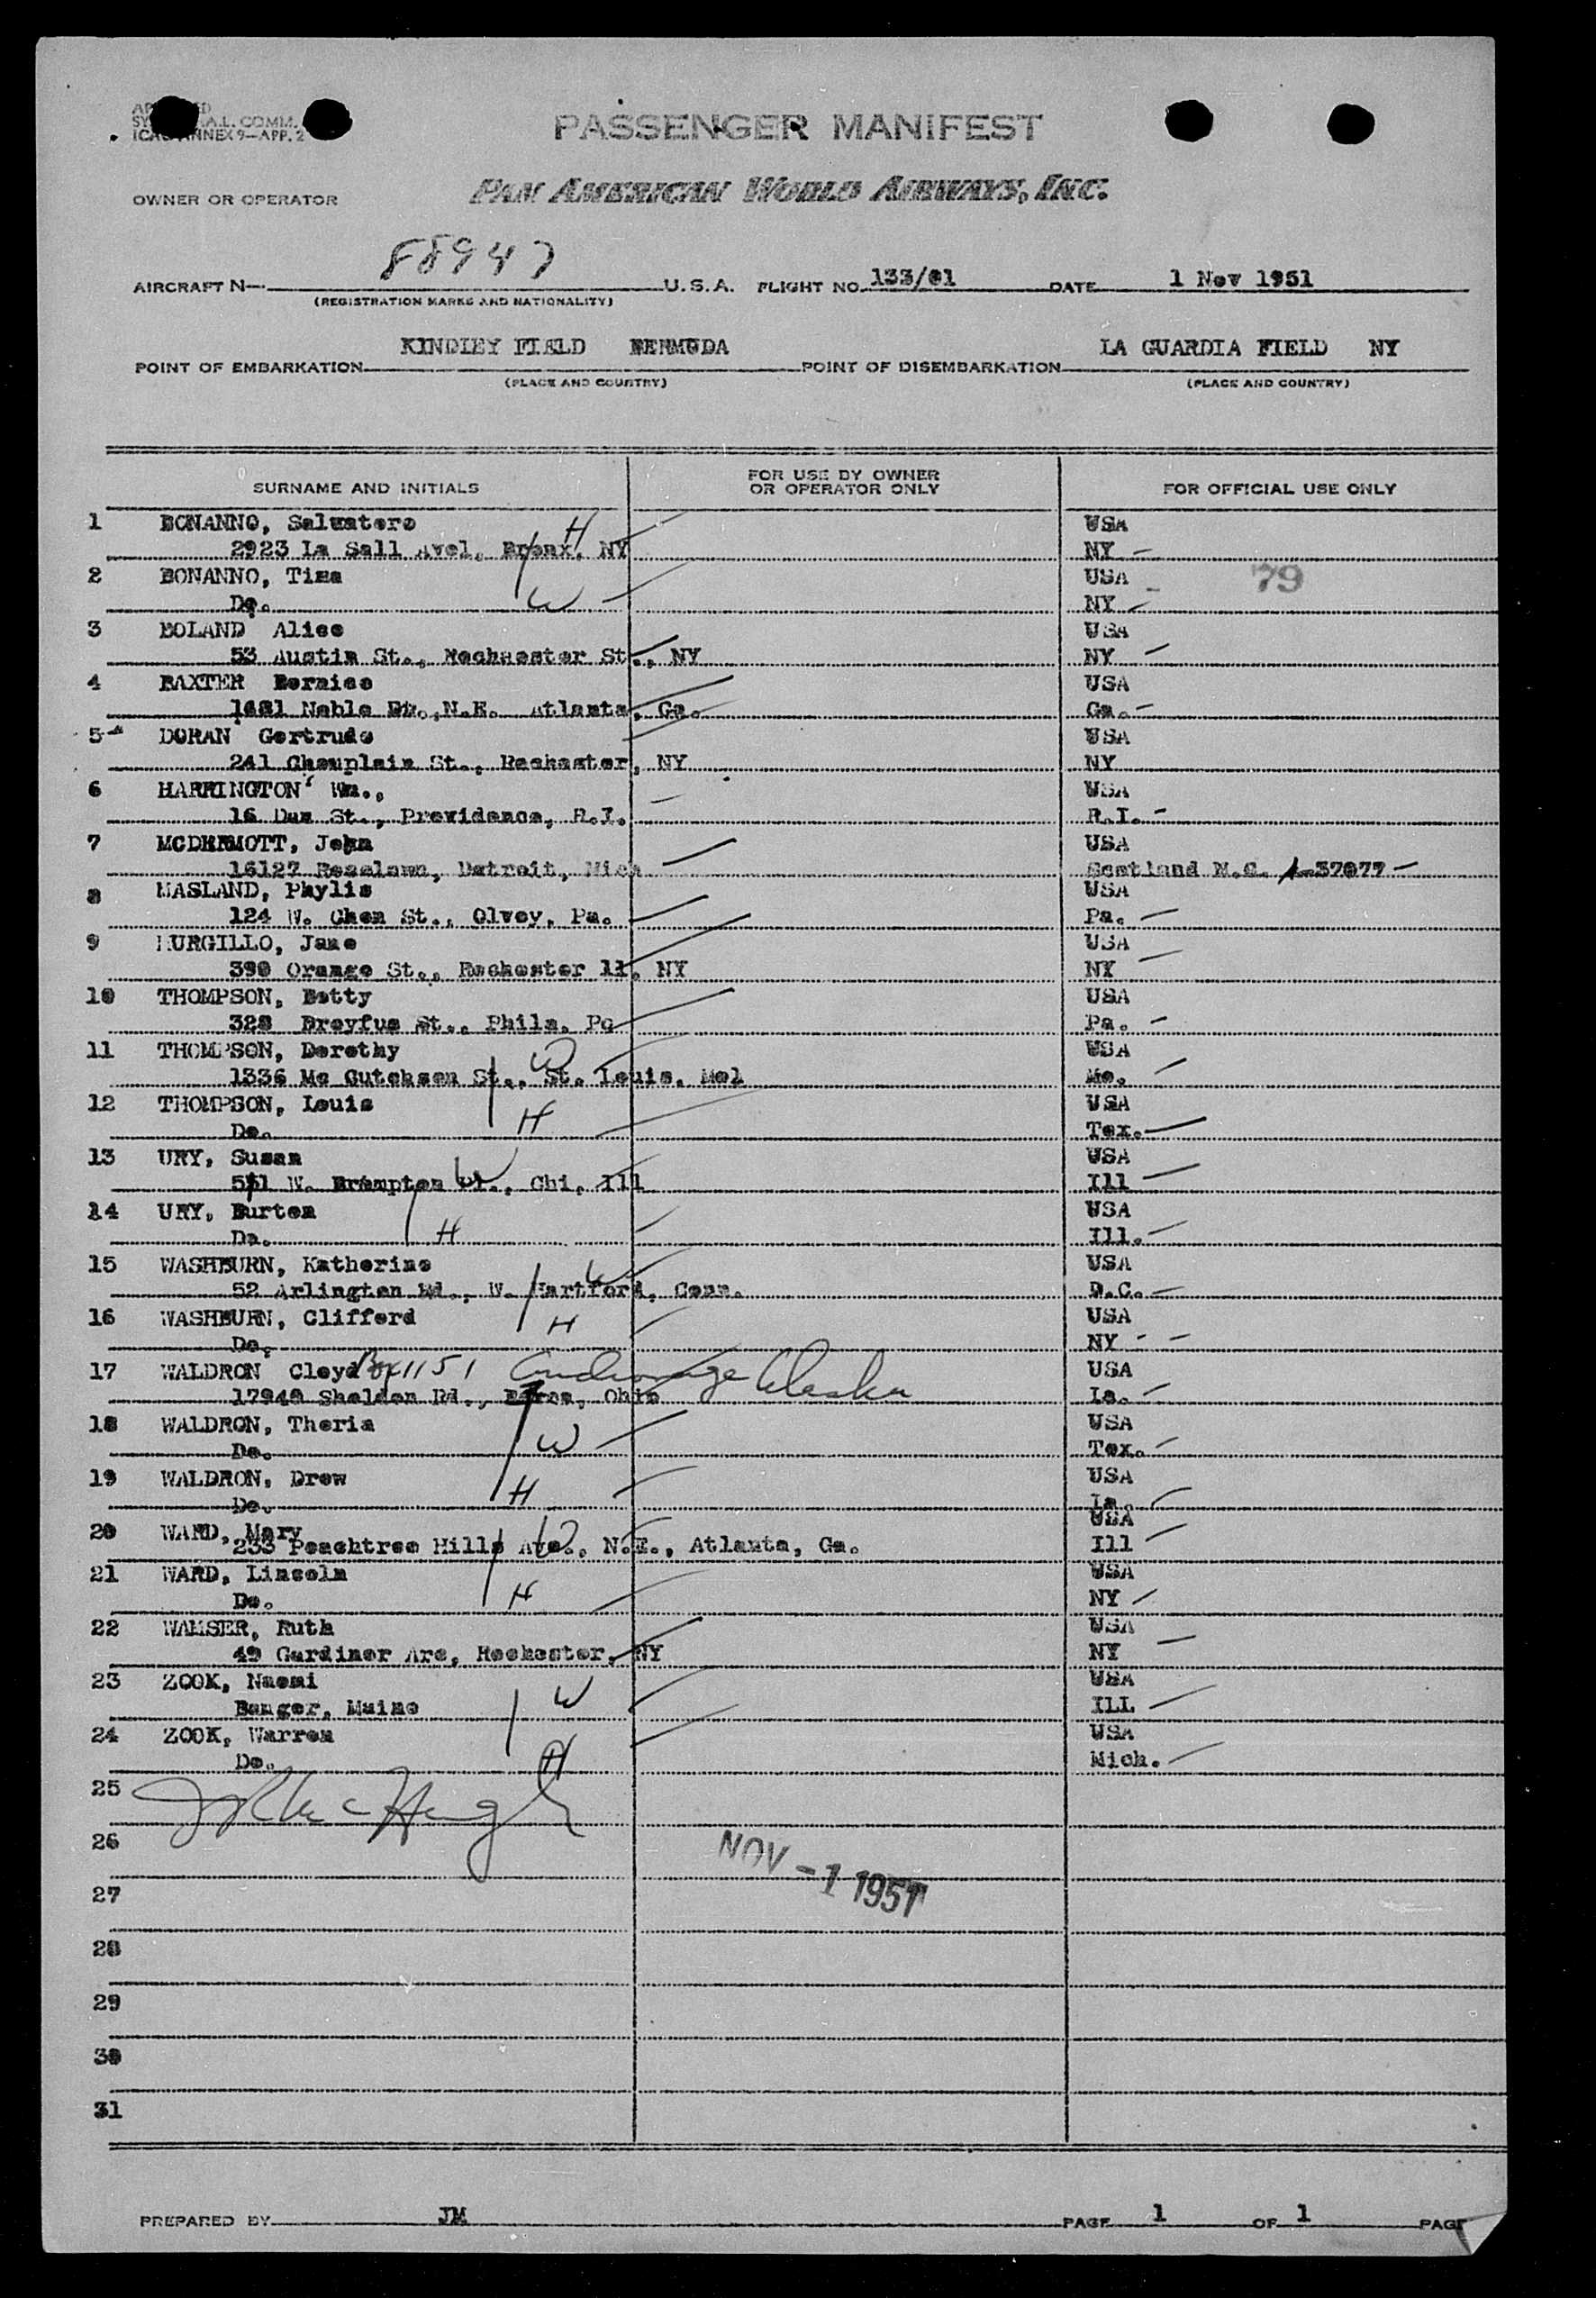 PASSENGER MANIFEST
ICAO ANNEX 9—APP. 2
OWNER OR OPERATOR PAN AMERICAN WORLD AIRWAYS, INC.
AIRCRAFT N— 88947 U.S.A. FLIGHT NO. 133/01 DATE 1 Nov 1951
(REGISTRATION MARKS AND NATIONALITY)
POINT OF EMBARKATION KINDLEY FIELD BERMUDA POINT OF DISEMBARKATION LA GUARDIA FIELD NY
(PLACE AND COUNTRY) (PLACE AND COUNTRY)
SURNAME AND INITIALS FOR USE BY OWNER OR OPERATOR ONLY FOR OFFICIAL USE ONLY
1 BONANNO, Salvatore H USA
2923 La Sall Avel, Bronx, NY NY —
2 BONANNO, Tina USA 79
Do. W NY —
3 BOLAND Alice USA
53 Austin St., St., NY NY —
4 BAXTER Bernice USA
Noble Dr., N.E. Atlanta, Ga. Ga. —
5 DORAN Gertrude USA
241 Champlain St., Rochester, NY NY
6 HARRINGTON Wm., USA
16 St., Providence, R.I. R.I. —
7 MCDERMOTT, John USA
16127 Roselawn, Detroit, Mich Scotland N.C. 37077 —
8 MASLAND, Phylis USA
124 W. Chem St., Olvey, Pa. Pa. —
9 MURGILLO, Jane USA
390 Orange St., Rochester 11, NY NY —
10 THOMPSON, Betty USA
328 Dreyfus St., Phila. Pa Pa. —
11 THOMPSON, Dorothy W USA
1336 Mc Cutcheon St., St. Louis, Mol Mo. —
12 THOMPSON, Louis USA
Do. H Tex. —
13 URY, Susan W USA
W. Brompton Pl., Chi, Ill Ill —
14 URY, Burton USA
Do. H Ill. —
15 WASHBURN, Katherine W USA
52 Arlington Rd., W. Hartford, Conn. D.C. —
16 WASHBURN, Clifford H USA
Do. NY - -
17 WALDRON Cloyd Box 1151 Anchorage Alaska USA
17940 Sheldon Rd., Berea, Ohio Ia. —
18 WALDRON, Theria USA
Do. W Tex. —
19 WALDRON, Drew USA
Do. H Ia. —
20 WARD, Mary W USA
233 Peachtree Hills Ave., N.E., Atlanta, Ga. Ill —
21 WARD, Lincoln USA
Do. H NY —
22 WAMSER, Ruth USA
49 Gardiner Are, Rochester, NY NY —
23 ZOOK, Naomi W USA
Bangor, Maine ILL —
24 ZOOK, Warren USA
Do. H Mich. —
25
26
NOV - 1 1951
27
28
29
30
31
PREPARED BY JM PAGE 1 OF 1 PAGE